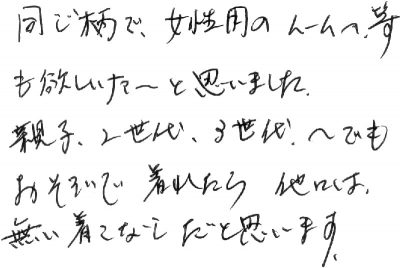 同じ柄で、女性用の ムームー、等
も欲しいな〜と思いました。
親子、2世代、3世代、〜でも
おそろいで 着れたら 他には、
無い着こなし だと思います。